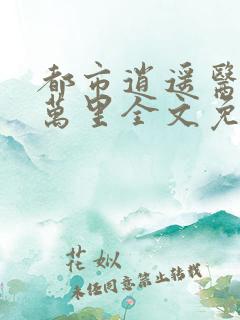 都市逍遥醫
萬里全文免
花姒
未经同意禁止转载